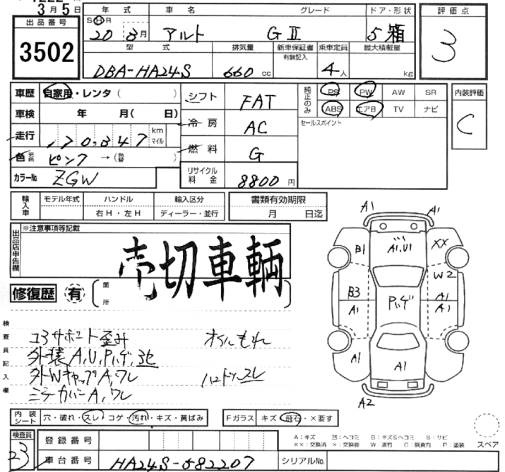 3月5日
出品番号
3502
年式 車名 グレード ドア・形状
20年8月 アルト GⅡ 5箱
評価点
3
型式 排気量 新車保証書 有無記入 乗車定員 最大積載量
DBA-HA24S 660cc 4人 kg
車歴 自家用・レンタ
車検 年 月(日)
走行 km マイル
色 ピンク→
カラーNo ZGW
シフト FAT
冷房 AC
燃料 G
リサイクル料金 8800円
純正のみ
PS PW AW SR
ABS エアB TV ナビ
セールスポイント
内装評価
C
輸入車 モデル年式 ハンドル 輸入区分 書類有効期限
右H・左H ディーラー・並行 月 日迄
出品店申告欄
※注意事項等記載
売切車輌
修復歴 有 箇所
検査員記入欄
コアサポート歪み オイルもれ
外装A,U,Pハゲ,3色
外WキャップA,ワレ ハンドルスレ
ミラーカバーA,ワレ
A1 A1
B1 A1,U1 XX
W2
B3 Pハゲ A1
A1 A1
A1
A2
内装シート 穴・破れ・スレ・コゲ・汚れ・キズ・黄ばみ
Fガラス キズ・飛石・×要す
スペア
検査員
23
登録番号
車台番号 HA24S-582207 シリアルNo.